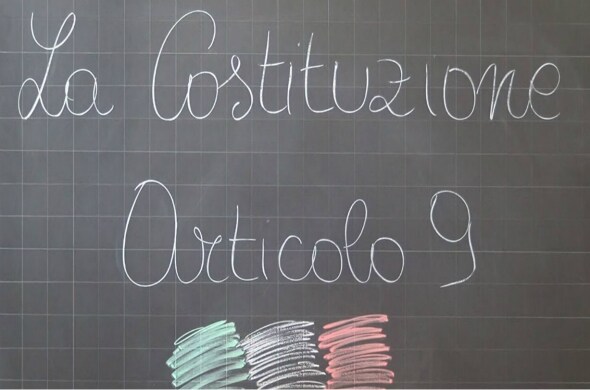 La Costituzione
Articolo 9